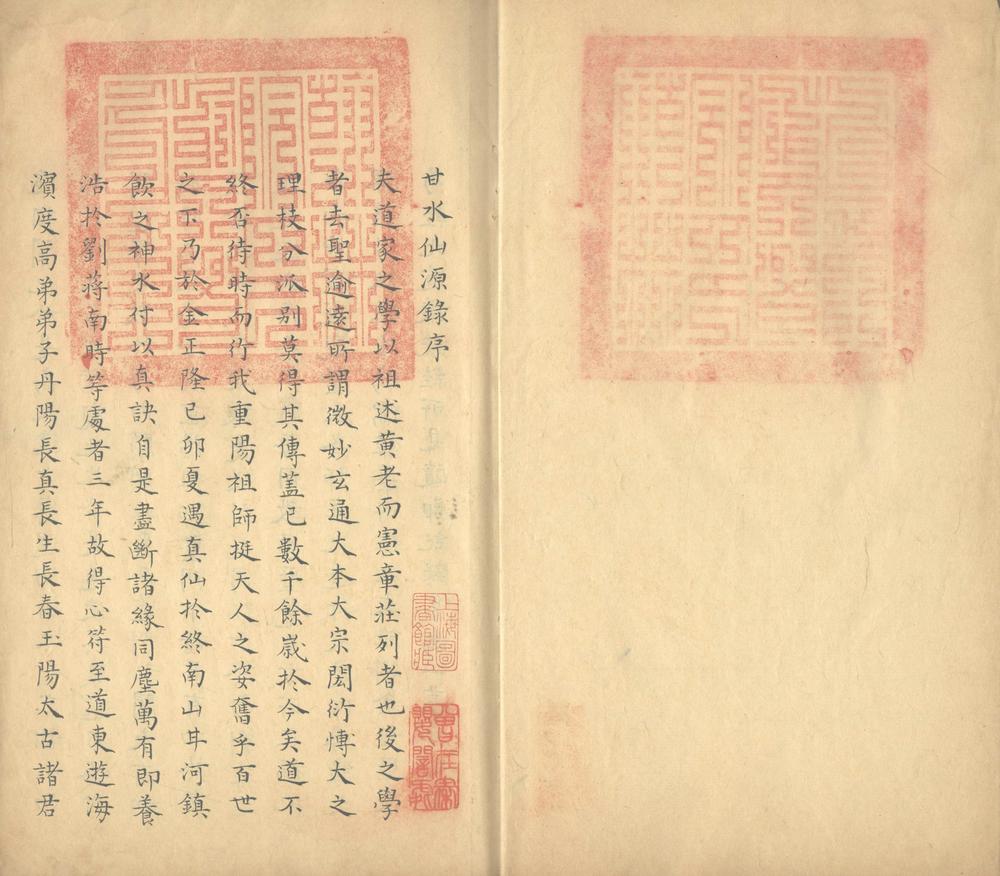 甘水仙源錄序
夫道家之學以祖述黃老而憲章莊列者也後之學
者去聖逾遠所謂微妙玄通大本大宗閎衍博大之
理枝分派别莫得其傳蓋已數千餘歲於今矣道不
終否待時而行我重陽祖師挺天人之姿奮乎百世
之下乃於金正隆己卯夏遇真仙於終南山甘河鎮
飲之神水付以真訣自是盡斷諸緣同塵萬有即養
浩於劉蔣南時等處者三年故得心符至道東遊海
濱度高弟弟子丹陽長真長生長春玉陽太古諸君
上海圖
書館藏